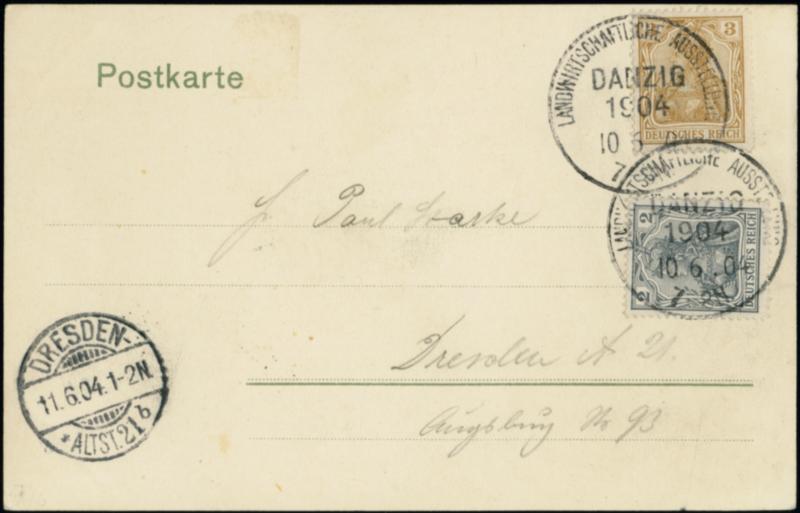 Postkarte
LANDWIRTSCHAFTLICHE AUSSTELLUNG
DANZIG
1904
10 6 04
7
3
DEUTSCHES REICH
LANDWIRTSCHAFTLICHE AUSSTELLUNG
DANZIG
1904
10.6.04
7-8N
2
2
DEUTSCHES REICH
Paul Starke
Dresden A 21.
Augsburg Nr 93
DRESDEN-
11.6.04.1-2N
*ALTST.21b